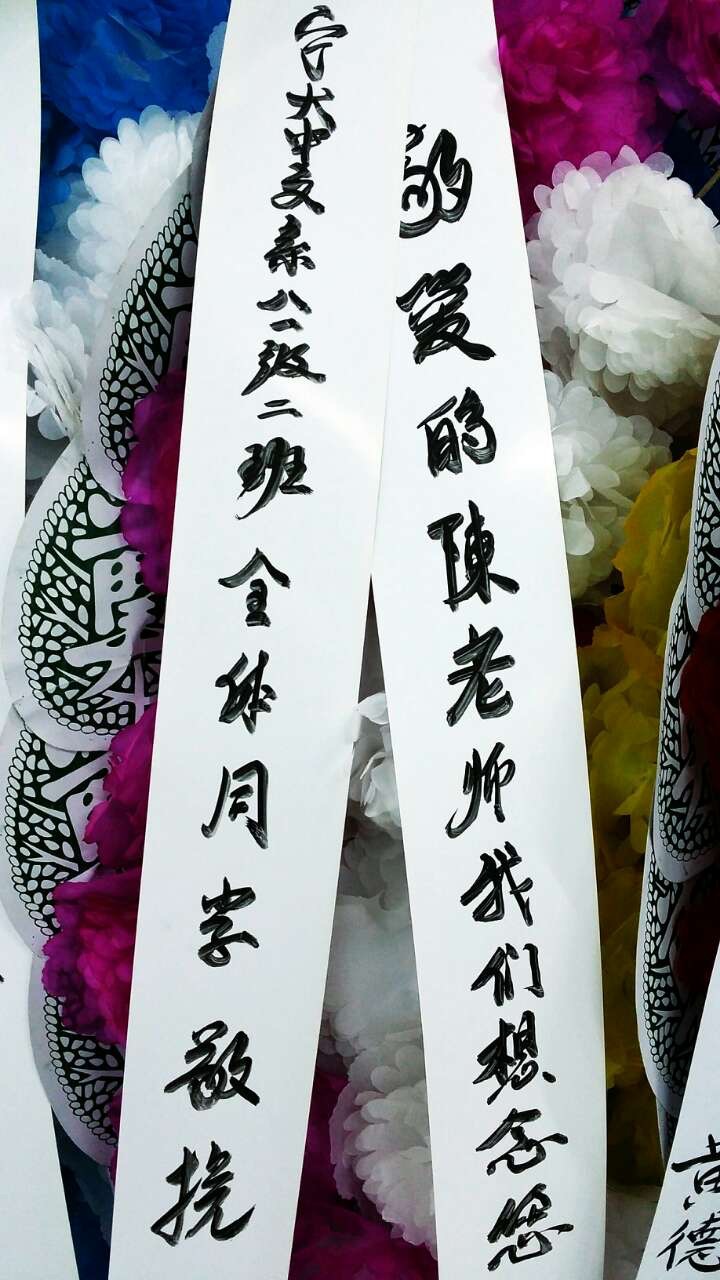 敬爱的陳老师我们想念您
宁大中文系八一级二班全体同学敬挽
黄德